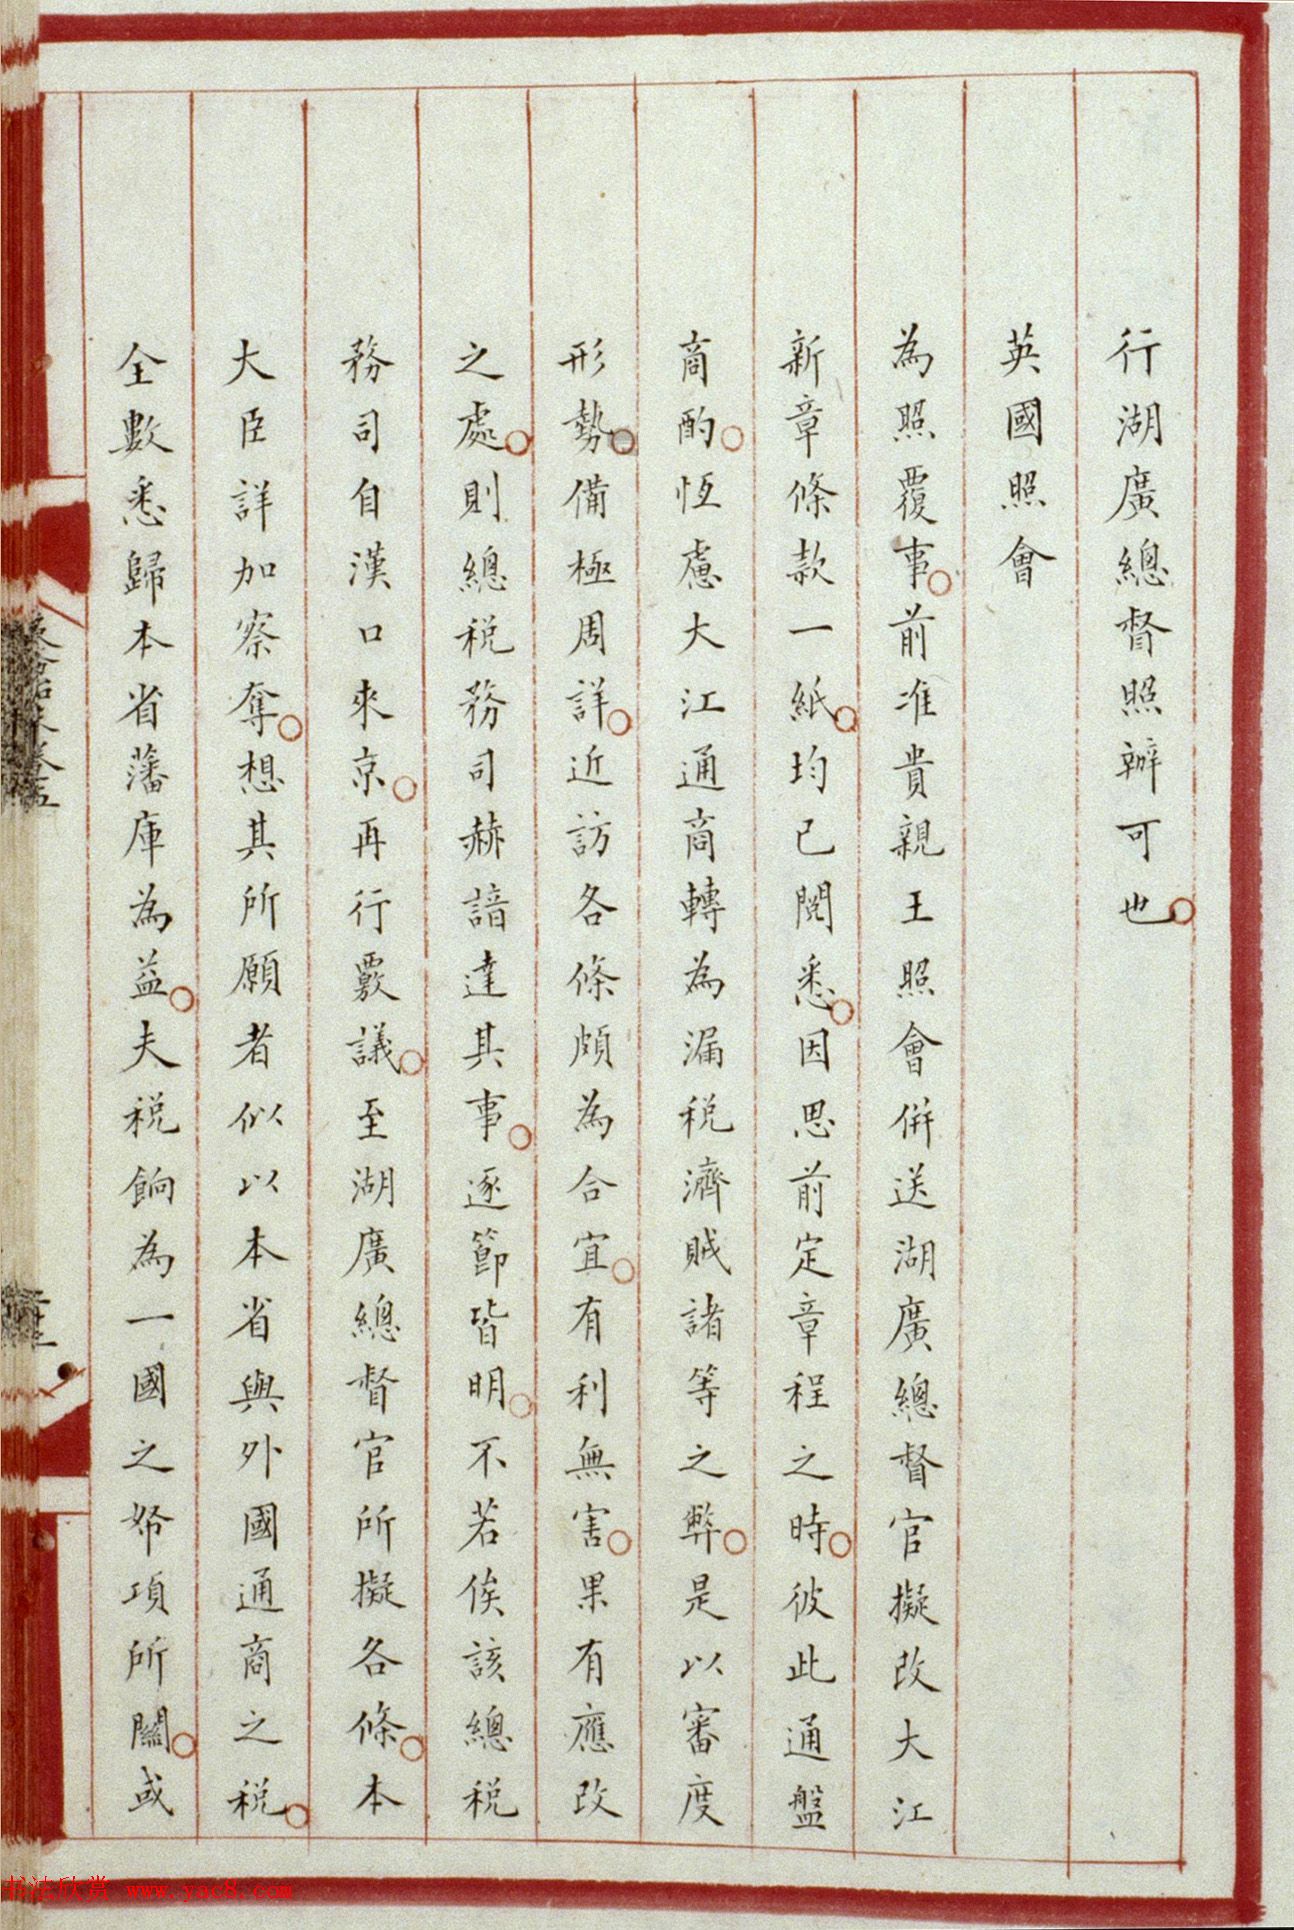 行湖廣總督照辦可也
英國照會
為照覆事前准貴親王照會併送湖廣總督官擬改大江
新章條款一紙均已閱悉因思前定章程之時彼此通盤
商酌恆慮大江通商轉為漏稅濟賊諸等之弊是以審度
形勢備極周詳近訪各條頗為合宜有利無害果有應改
之處則總稅務司赫諳達其事逐節皆明不若俟該總稅
務司自漢口來京再行覈議至湖廣總督官所擬各條本
大臣詳加察奪想其所願者似以本省與外國通商之稅
全數悉歸本省藩庫為益夫稅餉為一國之帑項所關或
书法欣赏 www.yac8.com